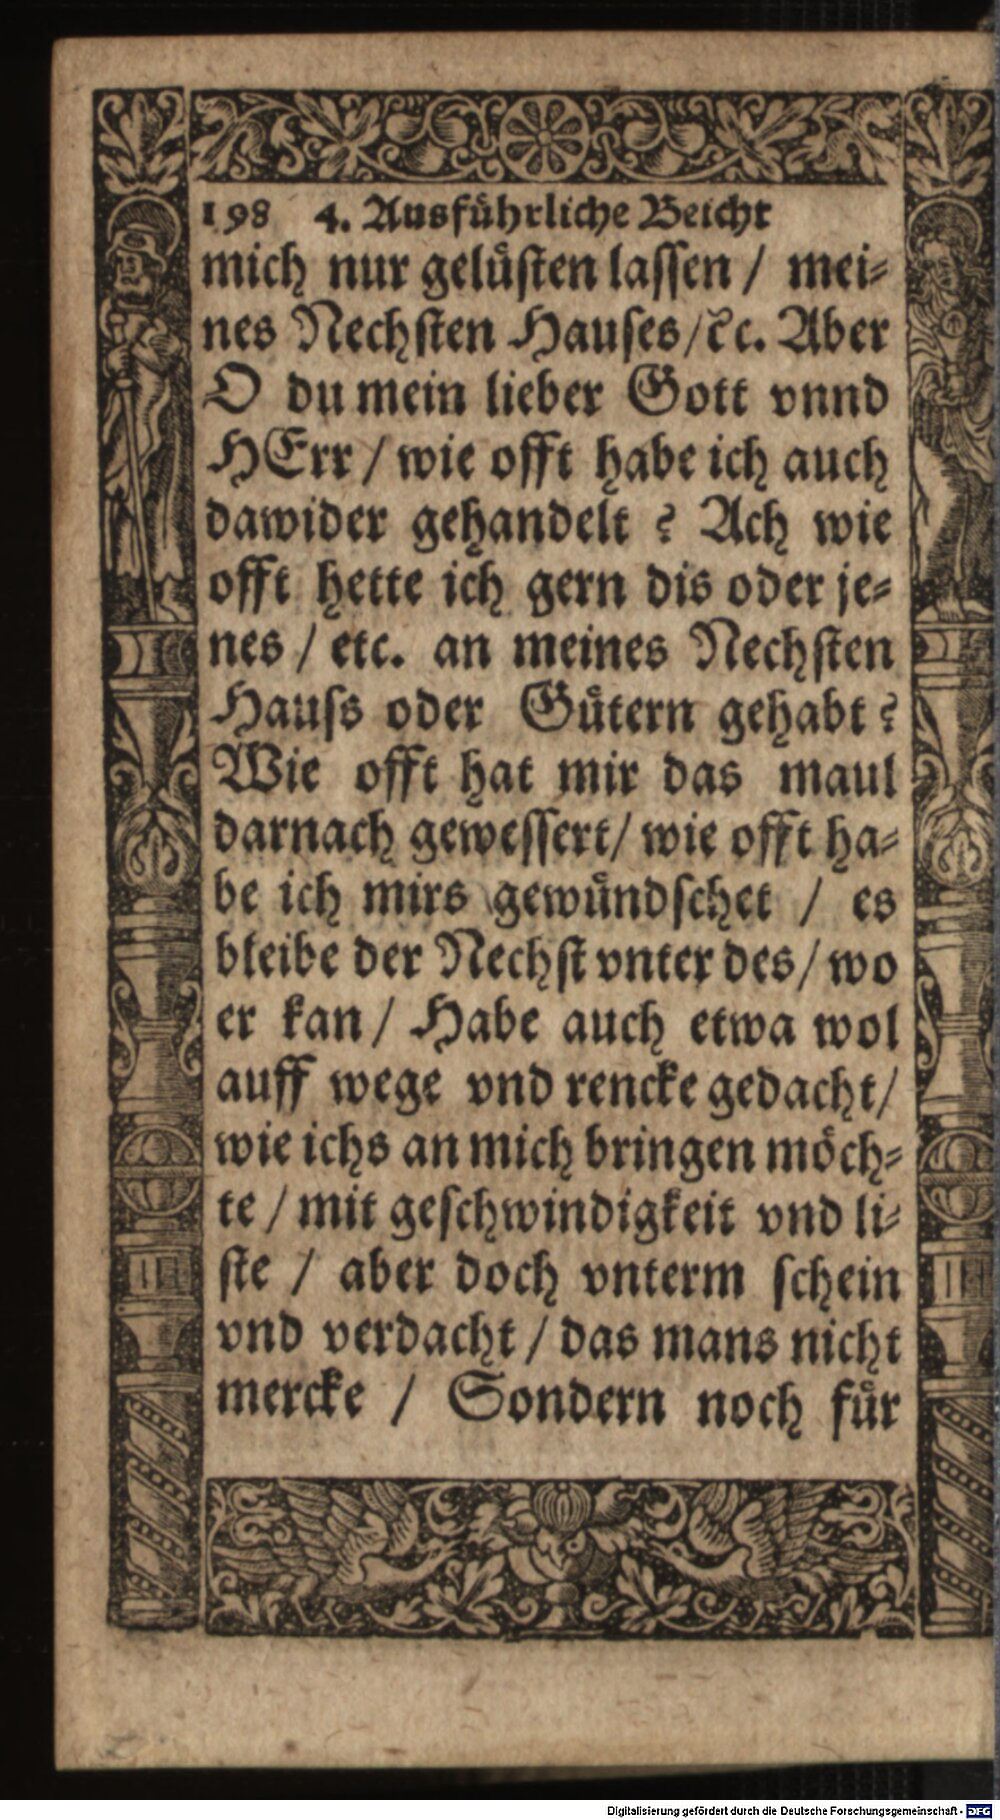 198 4. Ausführliche Beicht
mich nur gelüsten lassen / mei⸗
nes Nechsten Hauses / ꝛc. Aber
O du mein lieber Gott vnnd
HErr / wie offt habe ich auch
dawider gehandelt ? Ach wie
offt hette ich gern dis oder je⸗
nes / etc. an meines Nechsten
Hauss oder Gütern gehabt ?
Wie offt hat mir das maul
darnach gewessert / wie offt ha⸗
be ich mirs gewündschet / es
bleibe der Nechst vnter des / wo
er kan / Habe auch etwa wol
auff wege vnd rencke gedacht /
wie ichs an mich bringen möch⸗
te / mit geschwindigkeit vnd li⸗
ste / aber doch vnterm schein
vnd verdacht / das mans nicht
mercke / Sondern noch für
Digitalisierung gefördert durch die Deutsche Forschungsgemeinschaft - DFG